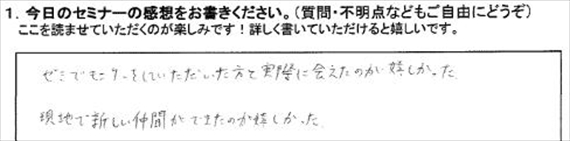 1. 今日のセミナーの感想をお書きください。（質問・不明点などもご自由にどうぞ）
ここを読ませていただくのが楽しみです！詳しく書いていただけると嬉しいです。
ゼミでモニターをしていただいた方と実際に会えたのが嬉しかった
現地で新しい仲間ができたのが嬉しかった